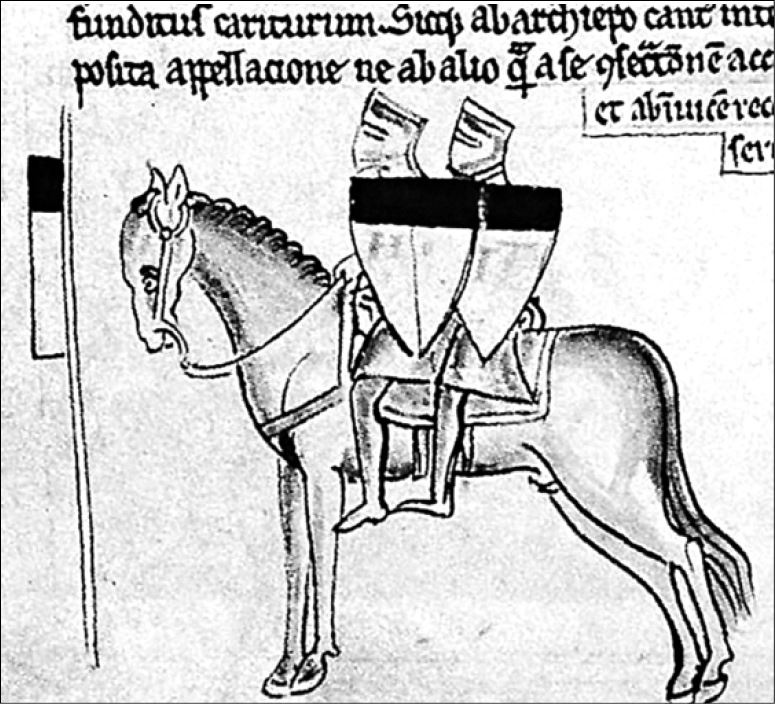 funditus cariturum. Sicq; ab archiepo cant int
posita appellacione ne ab alio q̄ a se ɔsecc̄onē acc
et ab īuicē rec
ser